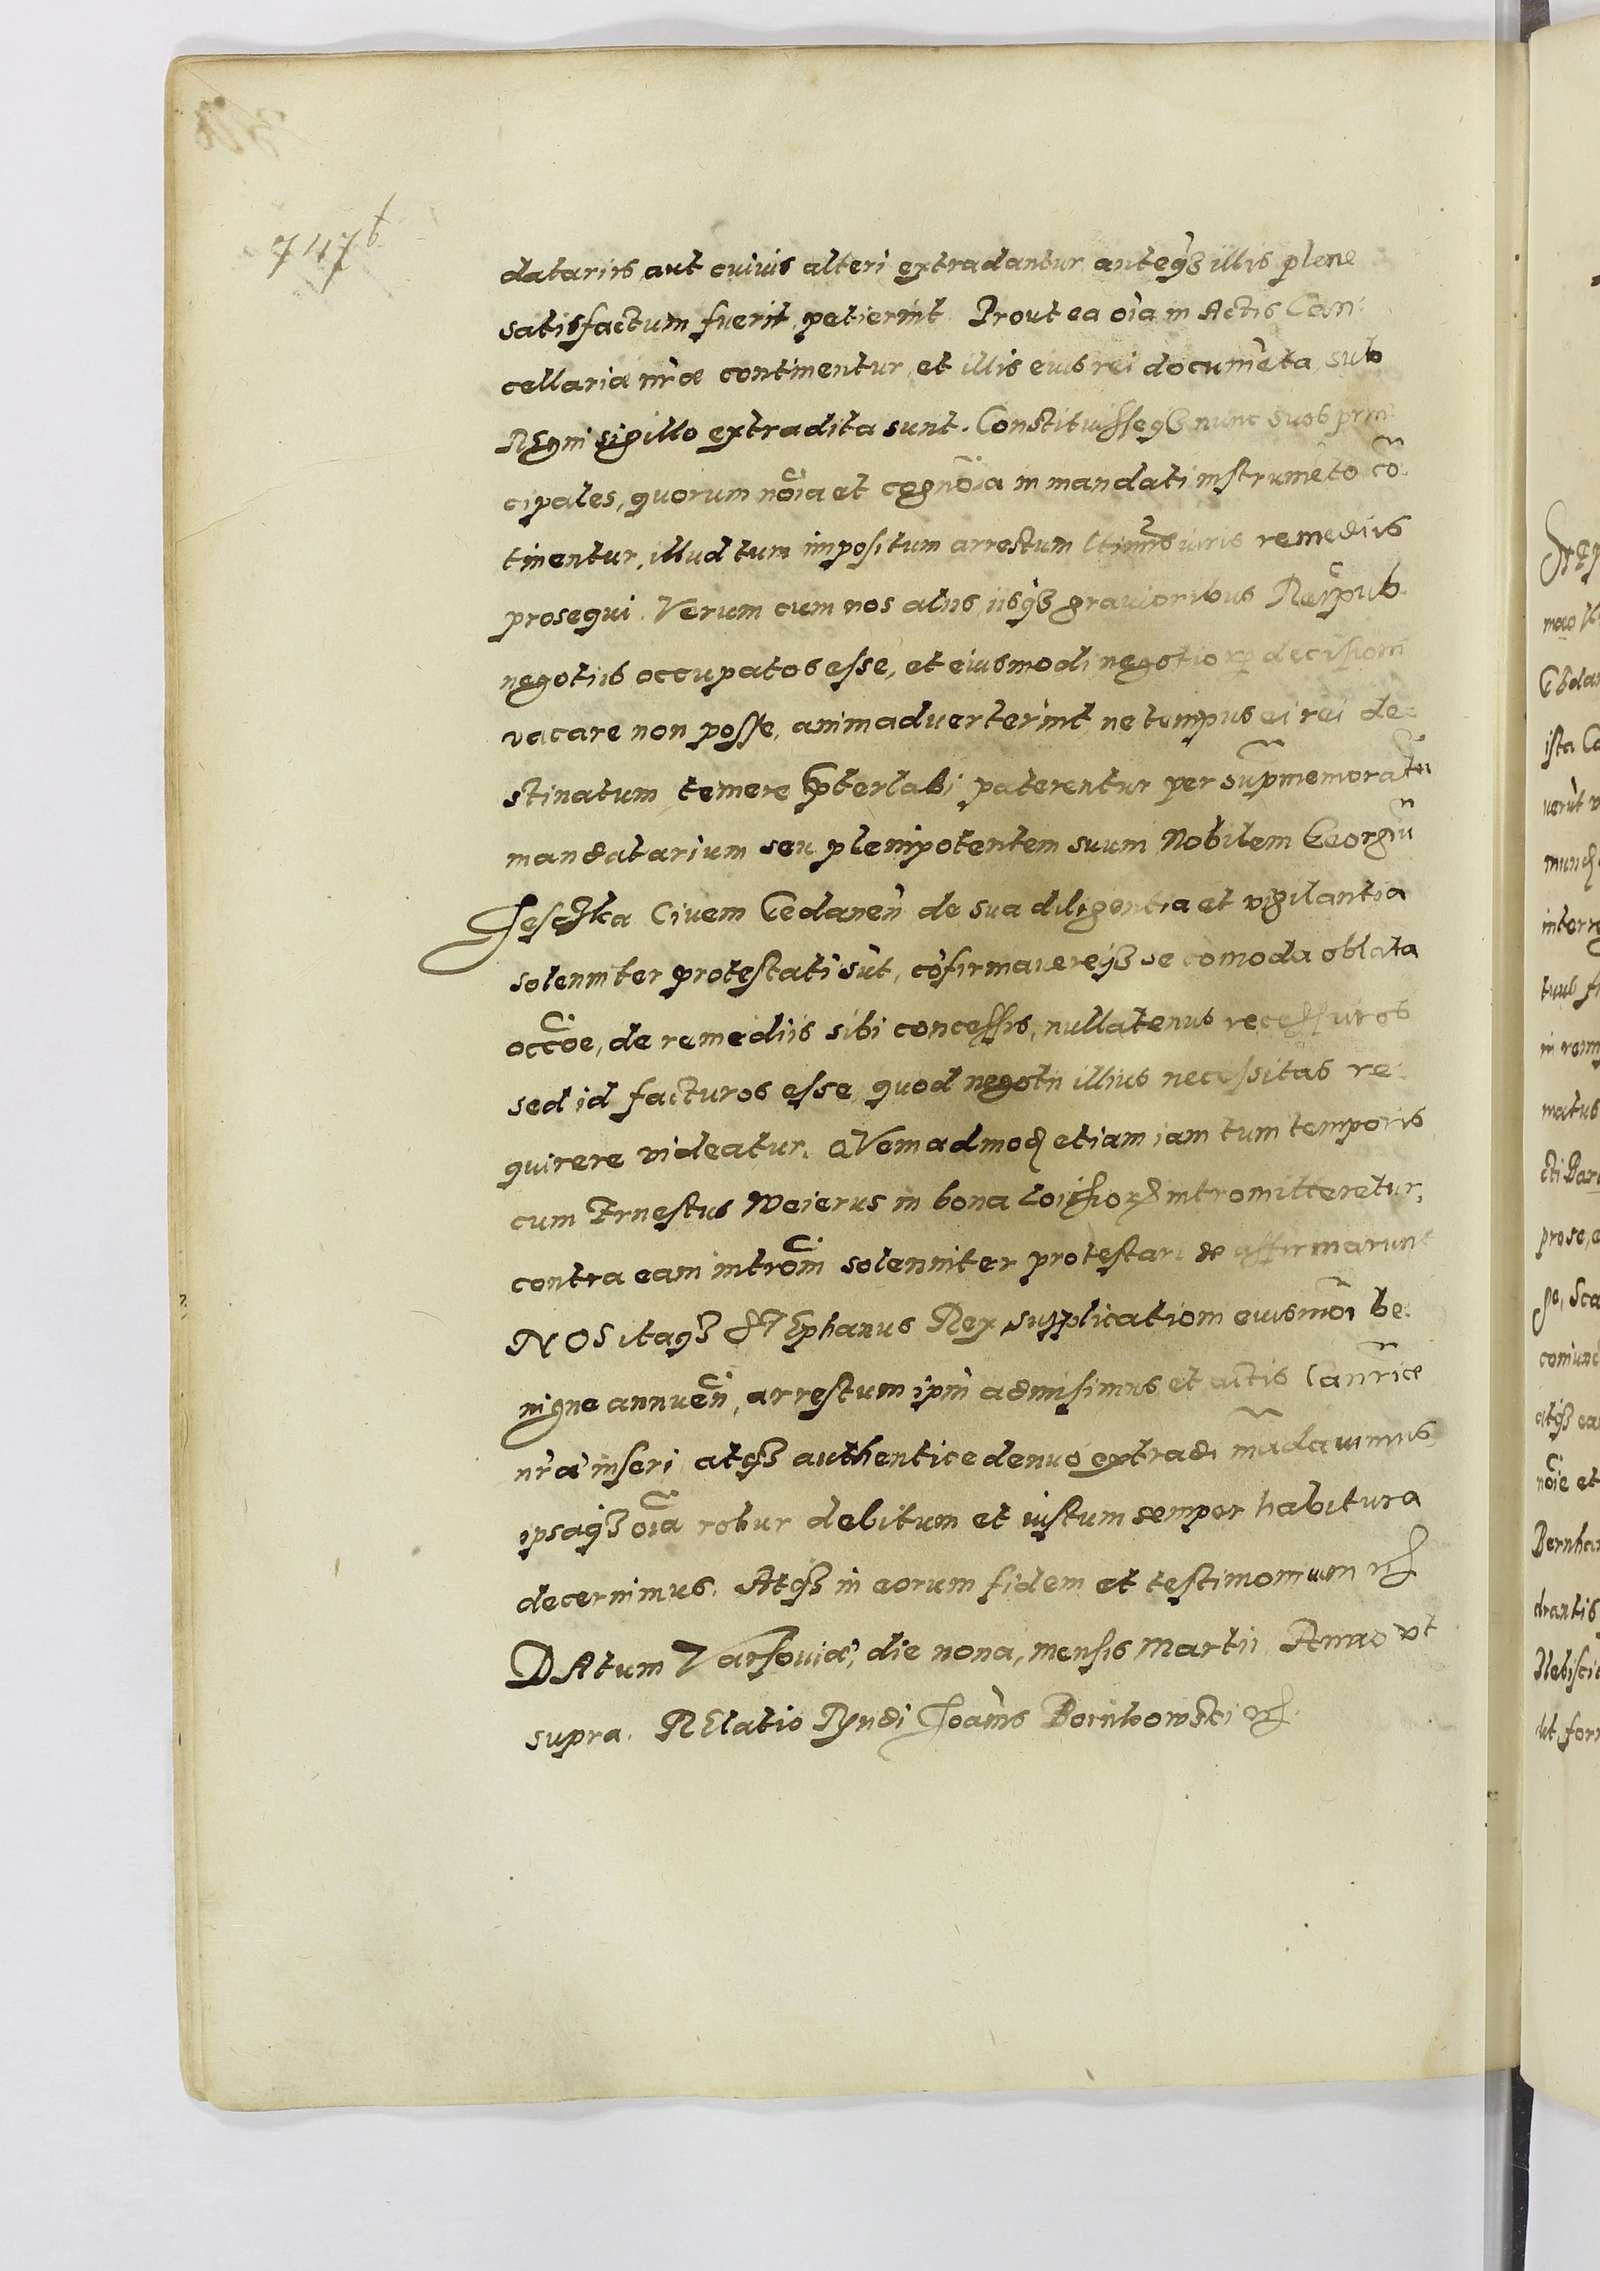 747b
datariis aut cuiuis alteri extradantur anteqз illis plene
satisfactum fuerit, petierint. Prout ea oĩa in Actis Can:
cellariæ nr̃æ continentur, et illis eius rei documẽta sub
REgni sigillo extradita sunt. Constituisseqз nunc suos prin:
cipales, quorum nõia et cognõia in mandati instrumẽto cõ:
tinentur, illud tum impositum arrestum iuris remediis
prosequi. Verum cum nos aliis iisqз grauioribus Reipub.
negotiis occupatos esse, et eiusmodi negotioꝝ decisioni
vacare non posse, animaduerterint ne tempus ei rei de=
stinatum temere p̃terlabi paterentur per sup̃memoratũ
mandatarium seu plenipotentem suum Nobilem Georgiũ
Jeschka Ciuem Gedaneñ de sua diligentia et vigilantia
solenniter protestati sũt, cõfirmauereqз se comoda oblata
occõe, de remediis sibi concessis, nullatenus recessuros
sed id facturos esse quod negotii illius necessitas re:
quirere videatur. QVemadmoď etiam iam tum temporis
cum Ernestus Weierus in bona Loisioꝝ intromitteretur,
contra eam introm̃ solenniter protestari se affirmarunt
NOS itaqз STEphanus Rex supplicationi eiusmõi be:
nigne annueñ, arrestum ipm̃ admisimus et actis Canr̃iæ
nr̃æ inseri atqз authentice denuo extradi mãdauimus
ipsaqз oĩa robur debitum et iustum semper habitura
decernimus. Atqз in eorum fidem et testimonium
DAtum Varsouiæ, die nona, mensis Martii Anno vt
supra. RElatio Rñdi Joañis Borukowski